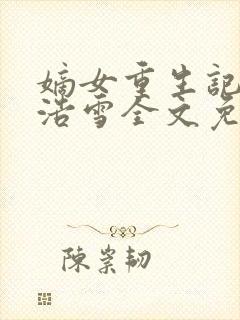 嫡女重生記
浩雪全文免
陳崇韧